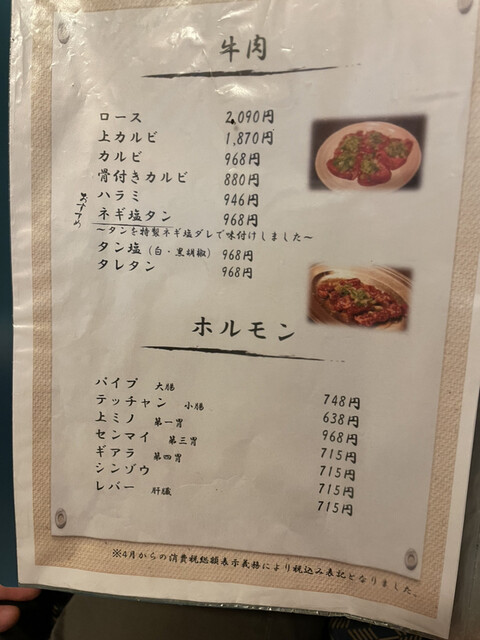 牛肉
ロース 2,090円
上カルビ 1,870円
カルビ 968円
骨付きカルビ 880円
ハラミ 946円
おすすめ ネギ塩タン 968円
〜タンを特製ネギ塩ダレで味付けしました〜
タン塩（白・黒胡椒） 968円
タレタン 968円
ホルモン
パイプ 大腸 748円
テッチャン 小腸 638円
上ミノ 第一胃 968円
センマイ 第三胃 715円
ギアラ 第四胃 715円
シンゾウ 715円
レバー 肝臓 715円
※4月からの消費税総額表示義務により税込み表記となりました。